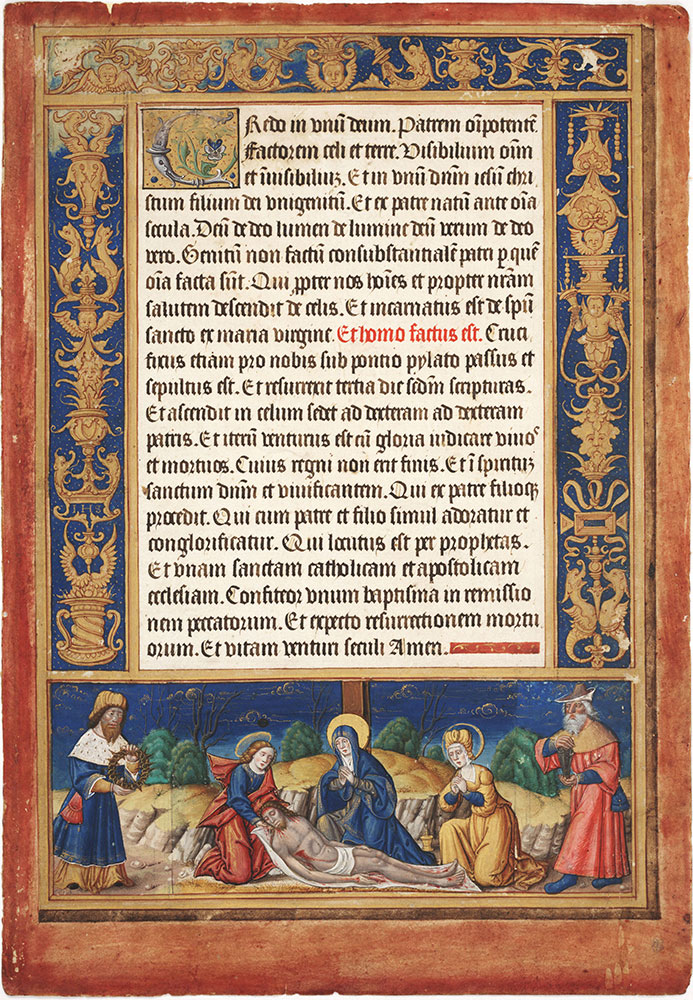 Credo in vnū deum. Patrem oīpotentē
Factorem celi et terre. Visibilium oīm
et īuisibiliuʒ. Et in vnū dn̄m iesū chri
stum filium dei vnigenitū. Et ex patre natū ante oīa
secula. Deū de deo lumen de lumine deū verum de deo
vero. Genitū non factū consubstantialē patri ꝑ quē
oīa facta sūt. Qui ꝓpter nos hoīes et propter nr̄am
salutem descendit de celis. Et incarnatus est de spū
sancto ex maria virgine. Et homo factus est. Cruci
fixus etiam pro nobis sub pontio pylato passus et
sepultus est. Et resurrexit tertia die scd̄m scripturas.
Et ascendit in celum sedet ad dexteram ad dexteram
patris. Et iterū venturus est cū gloria iudicare viuoˢ
et mortuos. Cuius regni non erit finis. Et ī spirituʒ
sanctum dn̄m et viuificantem. Qui ex patre filioqꝫ
procedit. Qui cum patre et filio simul adoratur et
conglorificatur. Qui locutus est per prophetas.
Et vnam sanctam catholicam et apostolicam
ecclesiam. Confiteor vnum baptisma in remissio
nem peccatorum. Et expecto resurrectionem mortu
orum. Et vitam venturi seculi Amen.
IHS